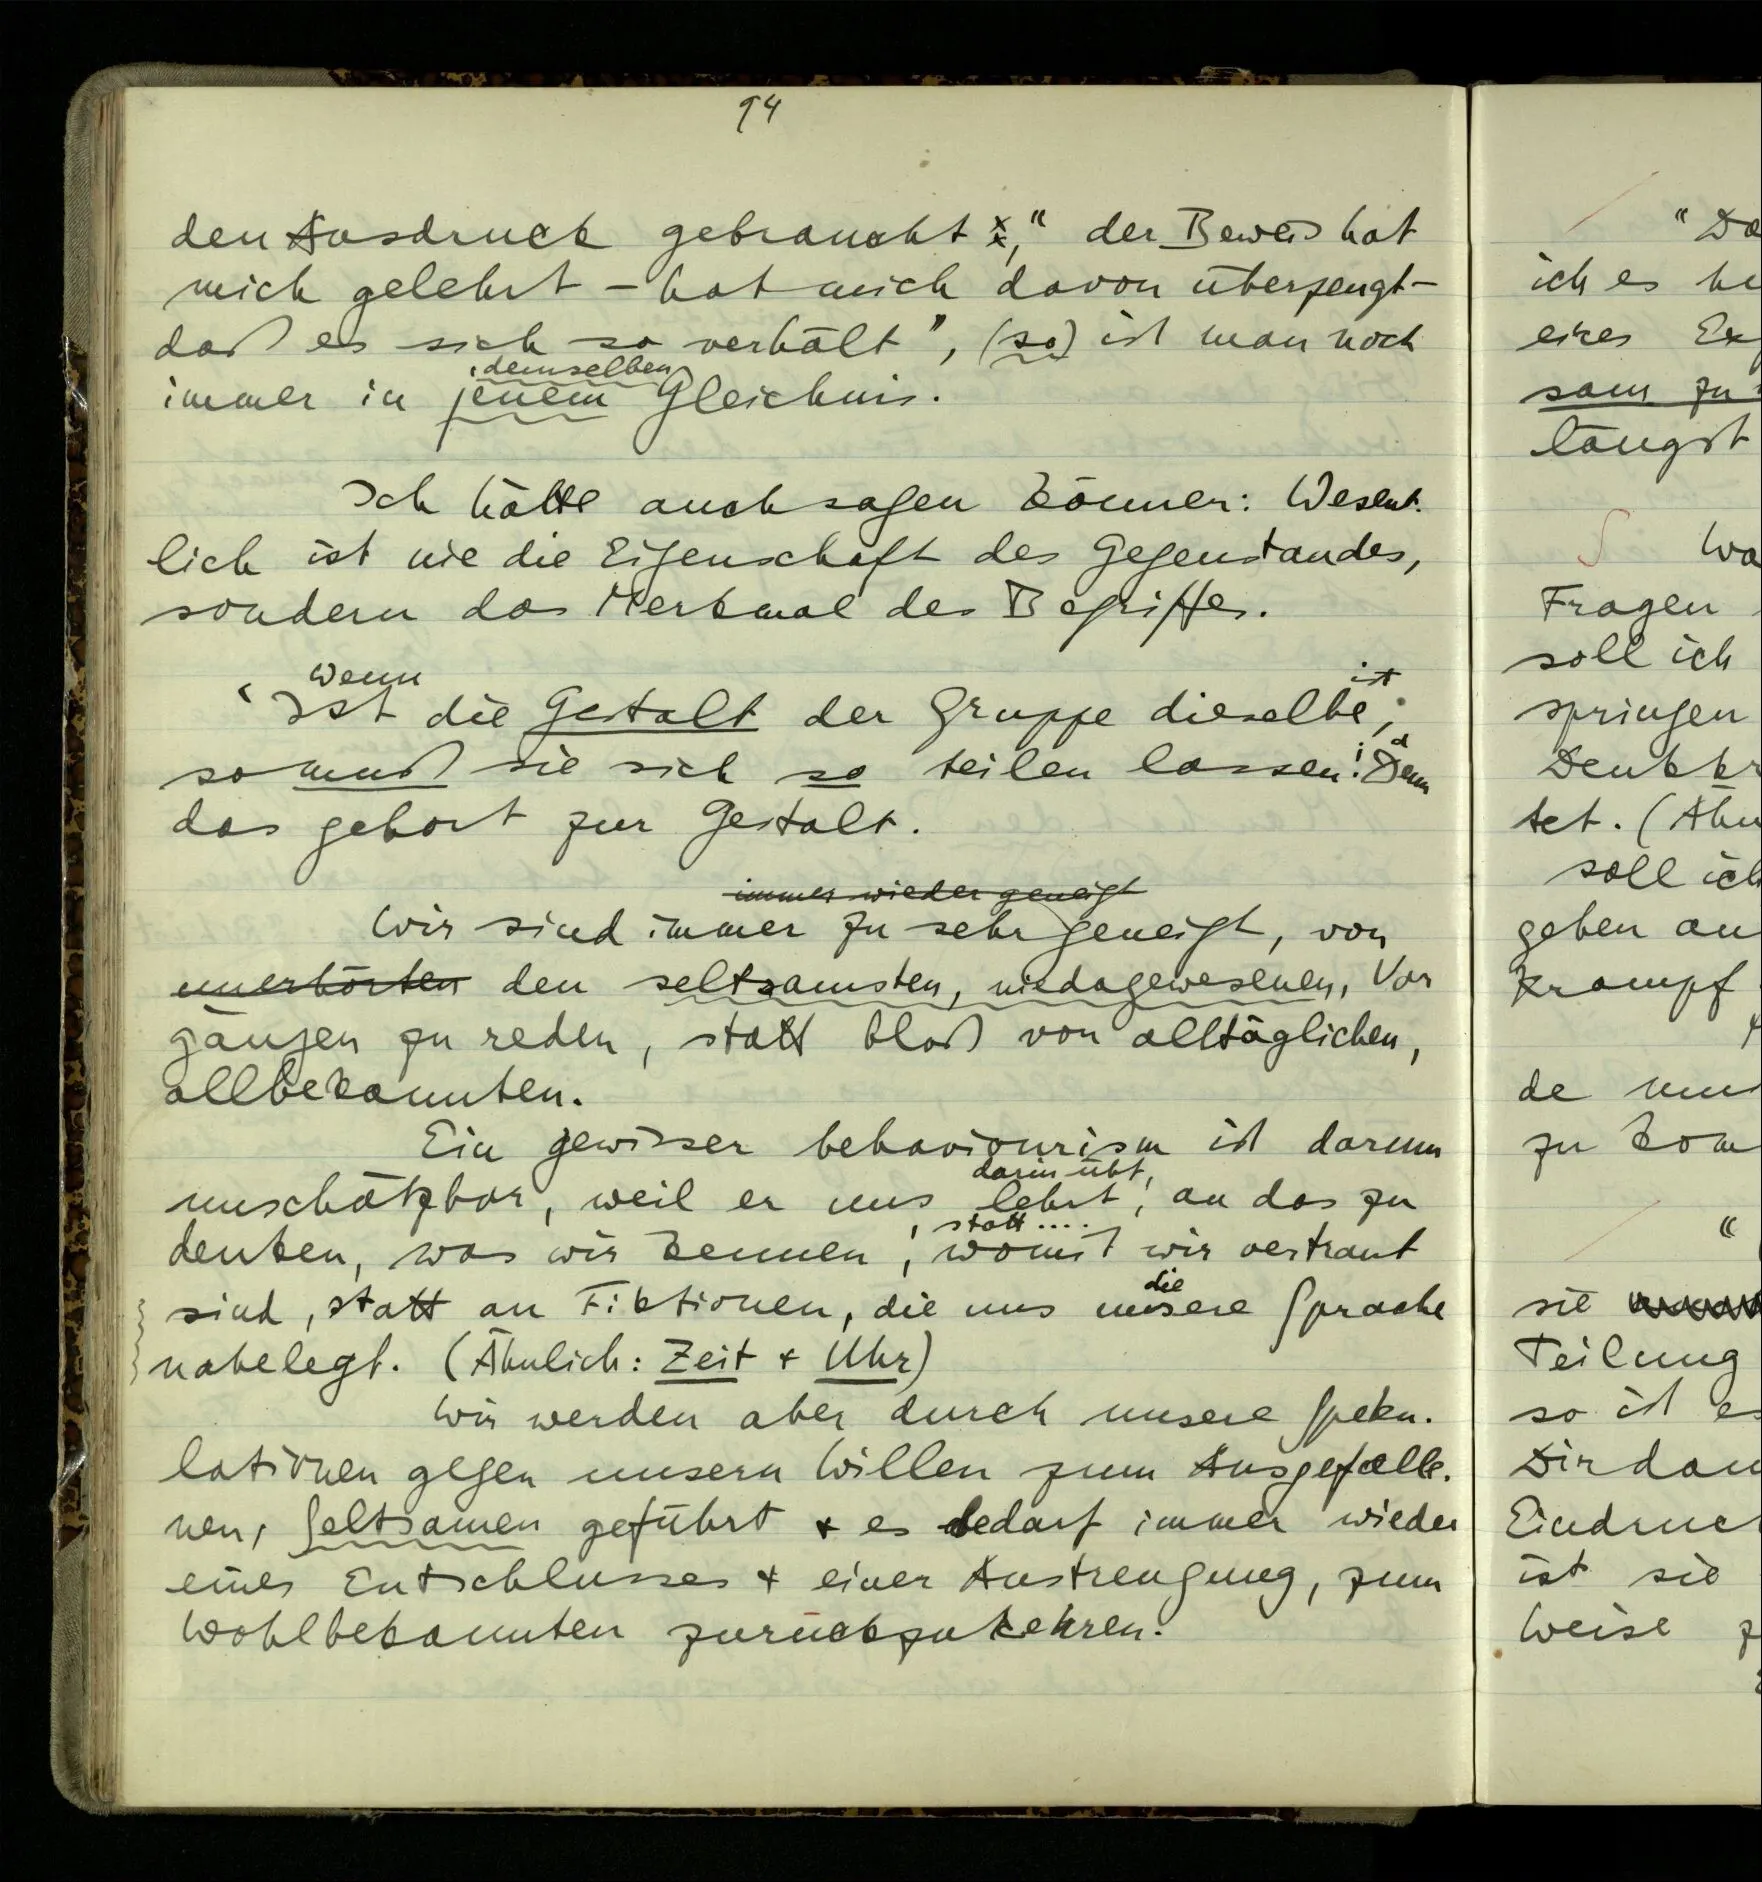 94
den Ausdruck gebraucht, "der Beweis hat
mich gelehrt – hat mich davon überzeugt –
daß es sich so verhält", (so) ist man noch
demselben
immer in jenem Gleichnis.
Ich hätte auch sagen können: Wesent-
lich ist nie die Eigenschaft des Gegenstandes,
sondern das Merkmal des Begriffes.
wenn ist
'Ist die Gestalt der Gruppe dieselbe,
d
so muß sie sich so teilen lassen! Denn
das gehört zur Gestalt.
immer wieder geneigt
Wir sind immer zu sehr geneigt, von
unerhörten den seltsamsten, niedagewesenen, Vor
gängen zu reden, statt bloß von alltäglichen,
allbekannten.
Ein gewisser behaviourism ist darum
darin übt,
unschätzbar, weil er uns lehrt, an das zu
statt....
denken, was wir kennen, womit wir vertraut
die
sind, statt an Fiktionen, die uns unsere Sprache
nahelegt. (Ähnlich: Zeit + Uhr)
Wir werden aber durch unsere Speku-
lationen gegen unsern Willen zum Ausgefalle-
nen, Seltsamen geführt + es bedarf immer wieder
eines Entschlusses + einer Anstrengung, zum
Wohlbekannten zurückzukehren.
"Da
ich es
eines Ex
sam zu
längst
Wa
Fragen
soll ich
springen
Denkkr
tet. (Ähn
soll ich
geben an
Krampf
de
zu kom
"
sie
Teilung
so ist es
Dir dan
Eindruck
ist sie
Weise z